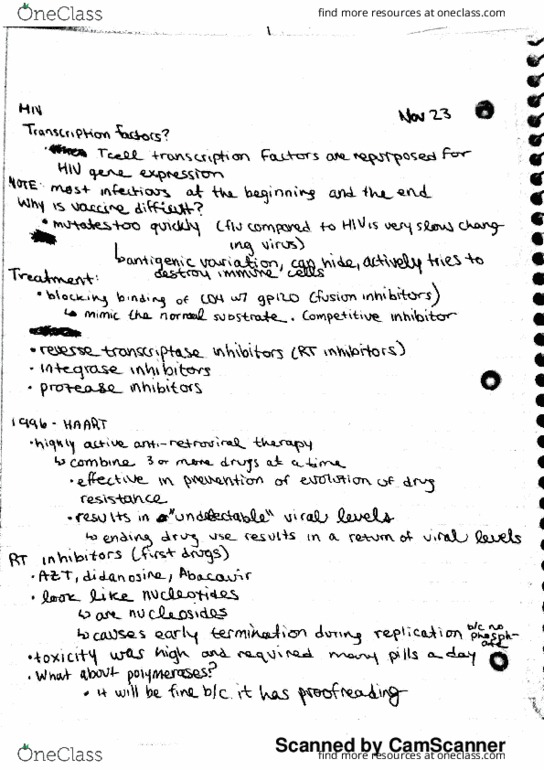 OneClass
find more resources at oneclass.com
HIV
Nov 23
Transcription factors?
• T cell transcription factors are repurposed for
HIV gene expression
NOTE: most infectious at the beginning and the end
Why is vaccine difficult?
• mutates too quickly (flu compared to HIV is very slow chang
ing virus)
↳ antigenic variation, can hide, actively tries to
destroy immune cells
Treatment:
• blocking binding of CD4 w/ gp120 (fusion inhibitors)
↳ mimic the normal substrate. Competitive inhibitor
• reverse transcriptase inhibitors (RT inhibitors)
• integrase inhibitors
• protease inhibitors
1996 - HAART
• highly active anti-retroviral therapy
↳ combine 3 or more drugs at a time
• effective in prevention of evolution of drug
resistance
• results in "undetectable" viral levels
↳ ending drug use results in a return of viral levels
RT inhibitors (first drugs)
• AZT, didanosine, Abacavir
• look like nucleotides
↳ are nucleosides
↳ causes early termination during replication b/c no
phosph-
ate
• toxicity was high and required many pills a day
• What about polymerases?
• it will be fine b/c it has proofreading
Scanned by CamScanner
OneClass
find more resources at oneclass.com